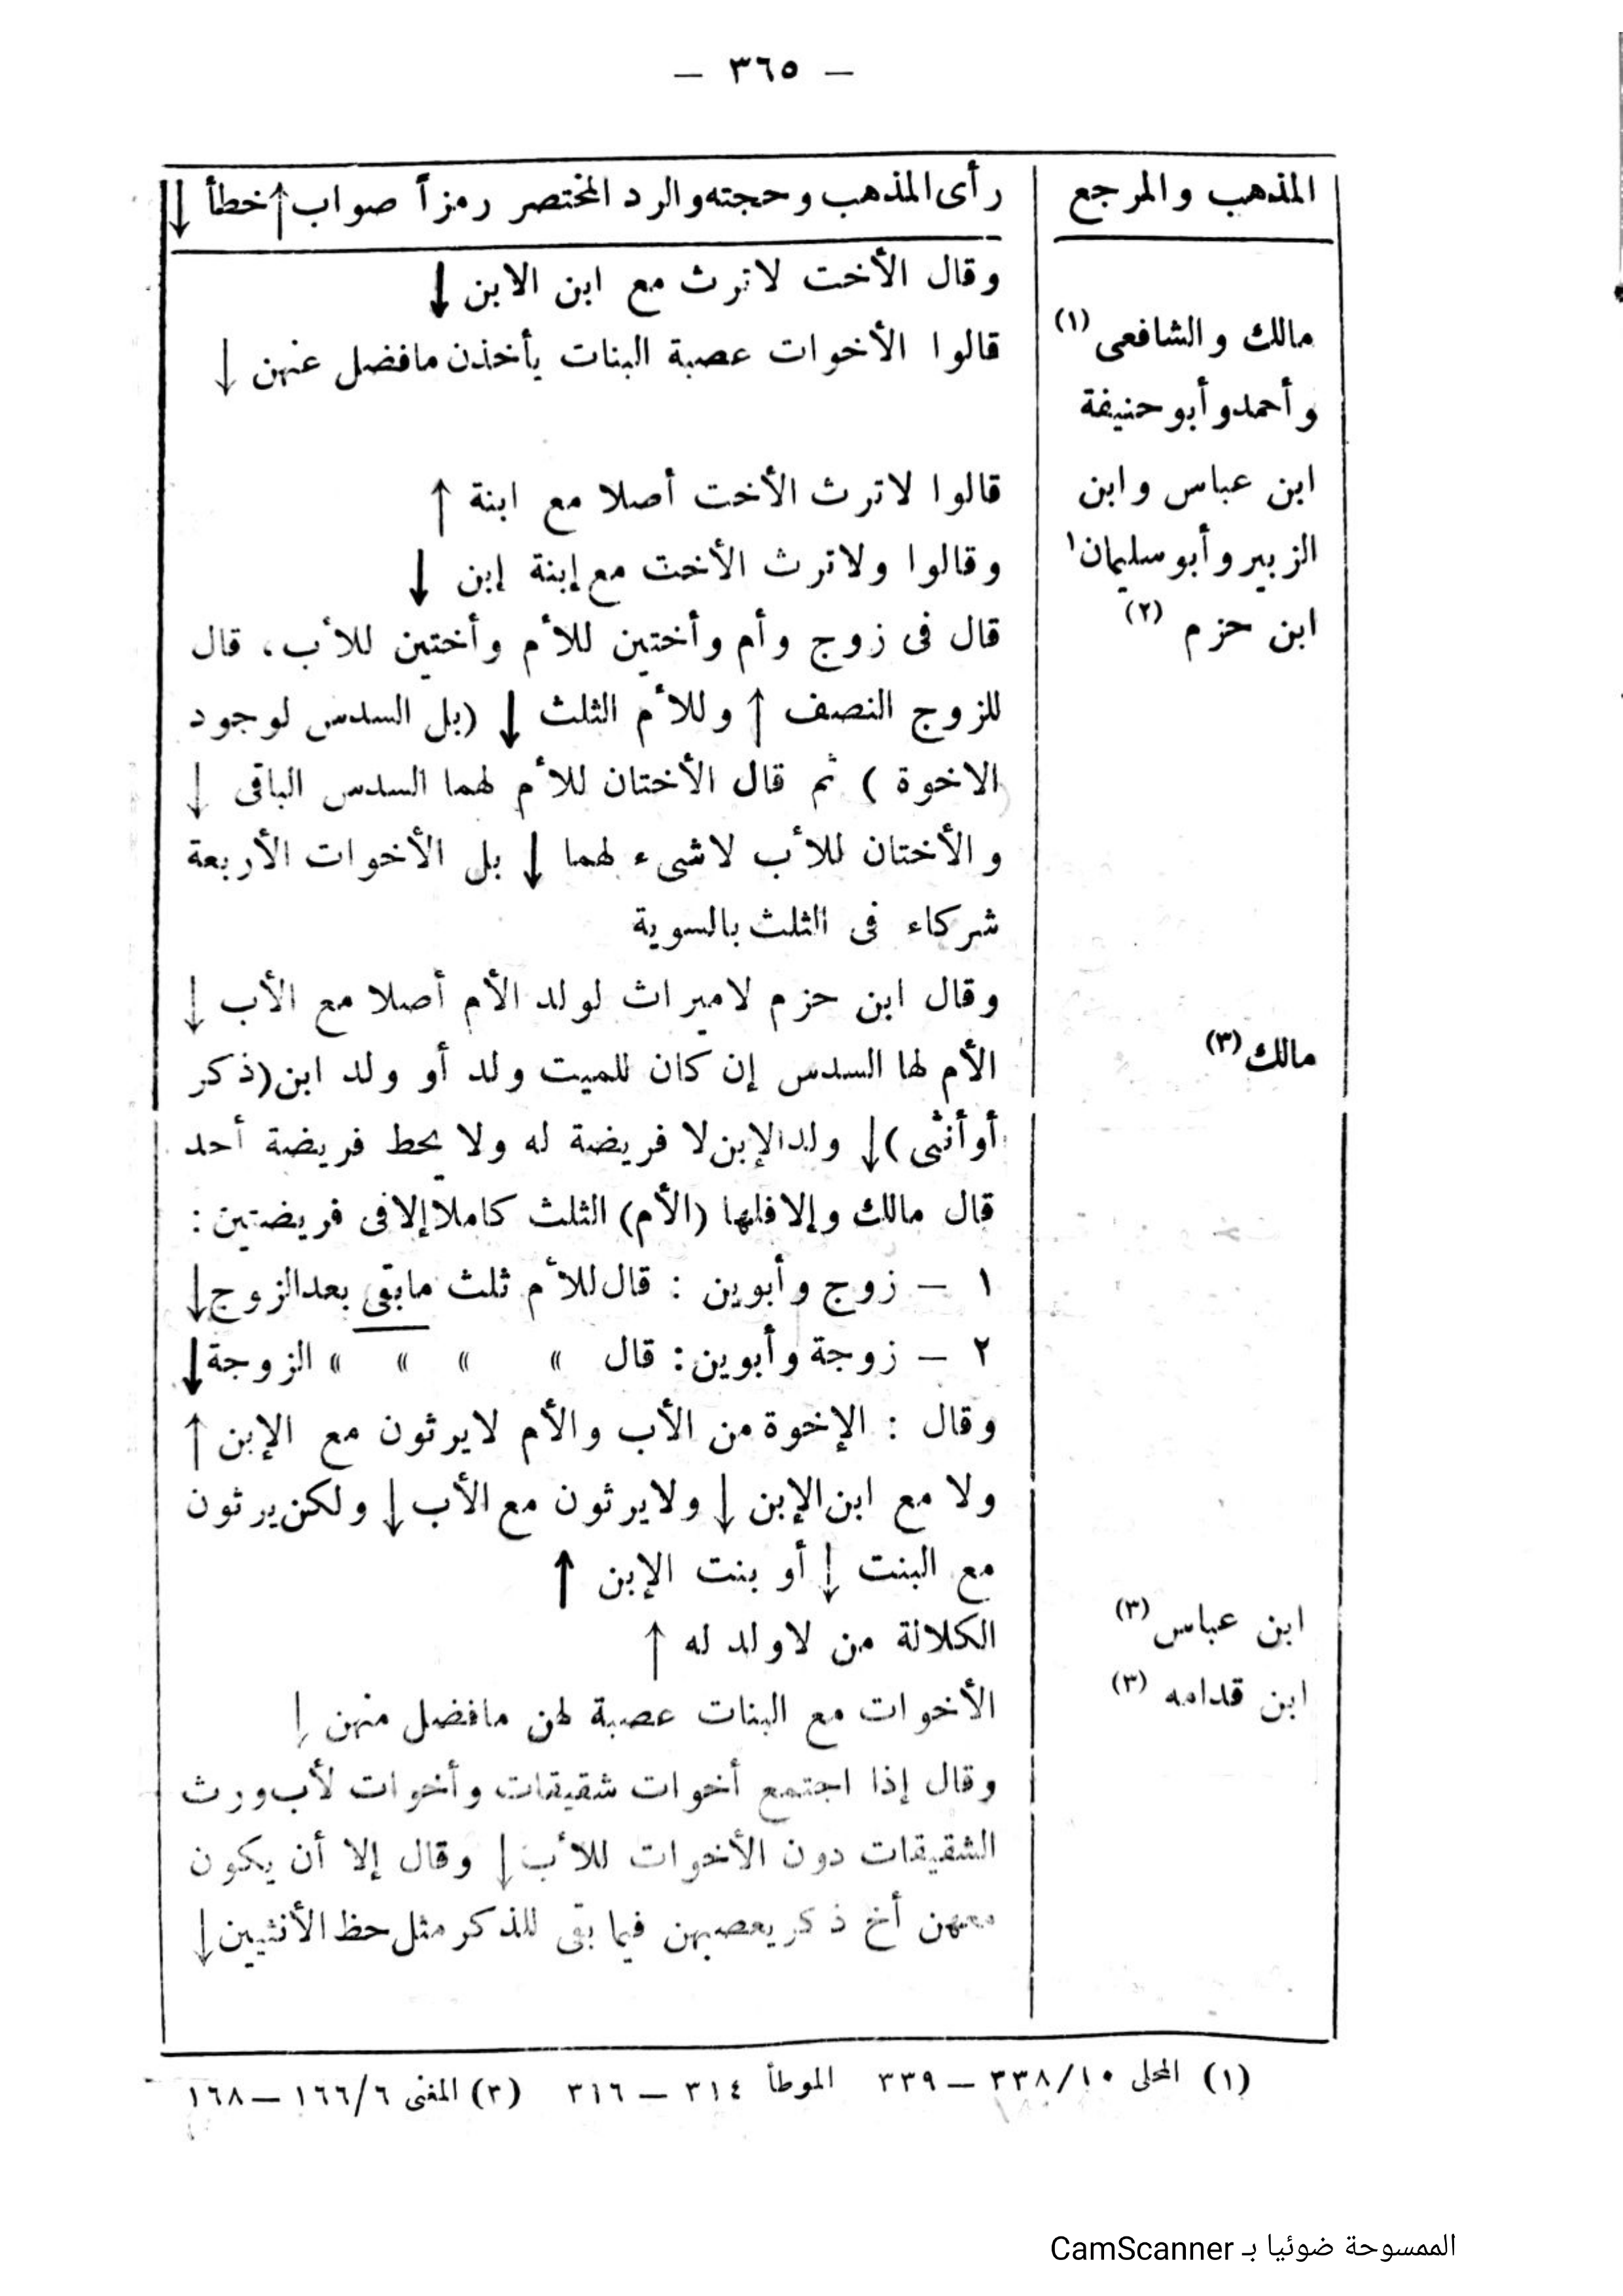 — ٣٦٥ —
المذهب والمرجع
رأى المذهب وحجته والرد المختصر رمزاً صواب ↑ خطأ ↓
وقال الأخت لاترث مع ابن الابن ↓
مالك والشافعى (١)
قالوا الأخوات عصبة البنات يأخذن مافضل عنهن ↓
وأحمد وأبو حنيفة
ابن عباس وابن
قالوا لاترث الأخت أصلا مع ابنة ↑
الزبير وأبو سليمان ١
وقالوا ولاترث الأخت مع إبنة إبن ↓
ابن حزم (٢)
قال فى زوج وأم وأختين للأم وأختين للأب، قال
للزوج النصف ↑ وللأم الثلث ↓ (بل السدس لوجود
الاخوة) ثم قال الأختان للأم لهما السدس الباقى ↓
والأختان للأب لاشىء لهما ↓ بل الأخوات الأربعة
شركاء فى الثلث بالسوية
وقال ابن حزم لاميراث لولد الأم أصلا مع الأب ↓
مالك (٣)
الأم لها السدس إن كان للميت ولد أو ولد ابن (ذكر
أو أنثى) ↓ ولد الإبن لا فريضة له ولا يحط فريضة أحد
قال مالك وإلا فلها (الأم) الثلث كاملا إلا فى فريضتين :
١ — زوج وأبوين : قال للأم ثلث مابقى بعد الزوج ↓
٢ — زوجة وأبوين : قال » » » » الزوجة ↓
وقال : الإخوة من الأب والأم لايرثون مع الإبن ↑
ولا مع ابن الإبن ↓ ولايرثون مع الأب ↓ ولكن يرثون
مع البنت ↓ أو بنت الإبن ↑
ابن عباس (٣)
الكلالة من لاولد له ↑
ابن قدامه (٣)
الأخوات مع البنات عصبة لهن مافضل منهن ↓
وقال إذا اجتمع أخوات شقيقات وأخوات لأب ورث
الشقيقات دون الأخوات للأب ↓ وقال إلا أن يكون
معهن أخ ذكر يعصبهن فيما بقى للذكر مثل حظ الأنثيين ↓
(١) المحلى ٣٣٨/١٠ — ٣٣٩ الموطأ ٣١٤ — ٣١٦ (٣) المغنى ١٦٦/٦ — ١٦٨
الممسوحة ضوئيا بـ CamScanner